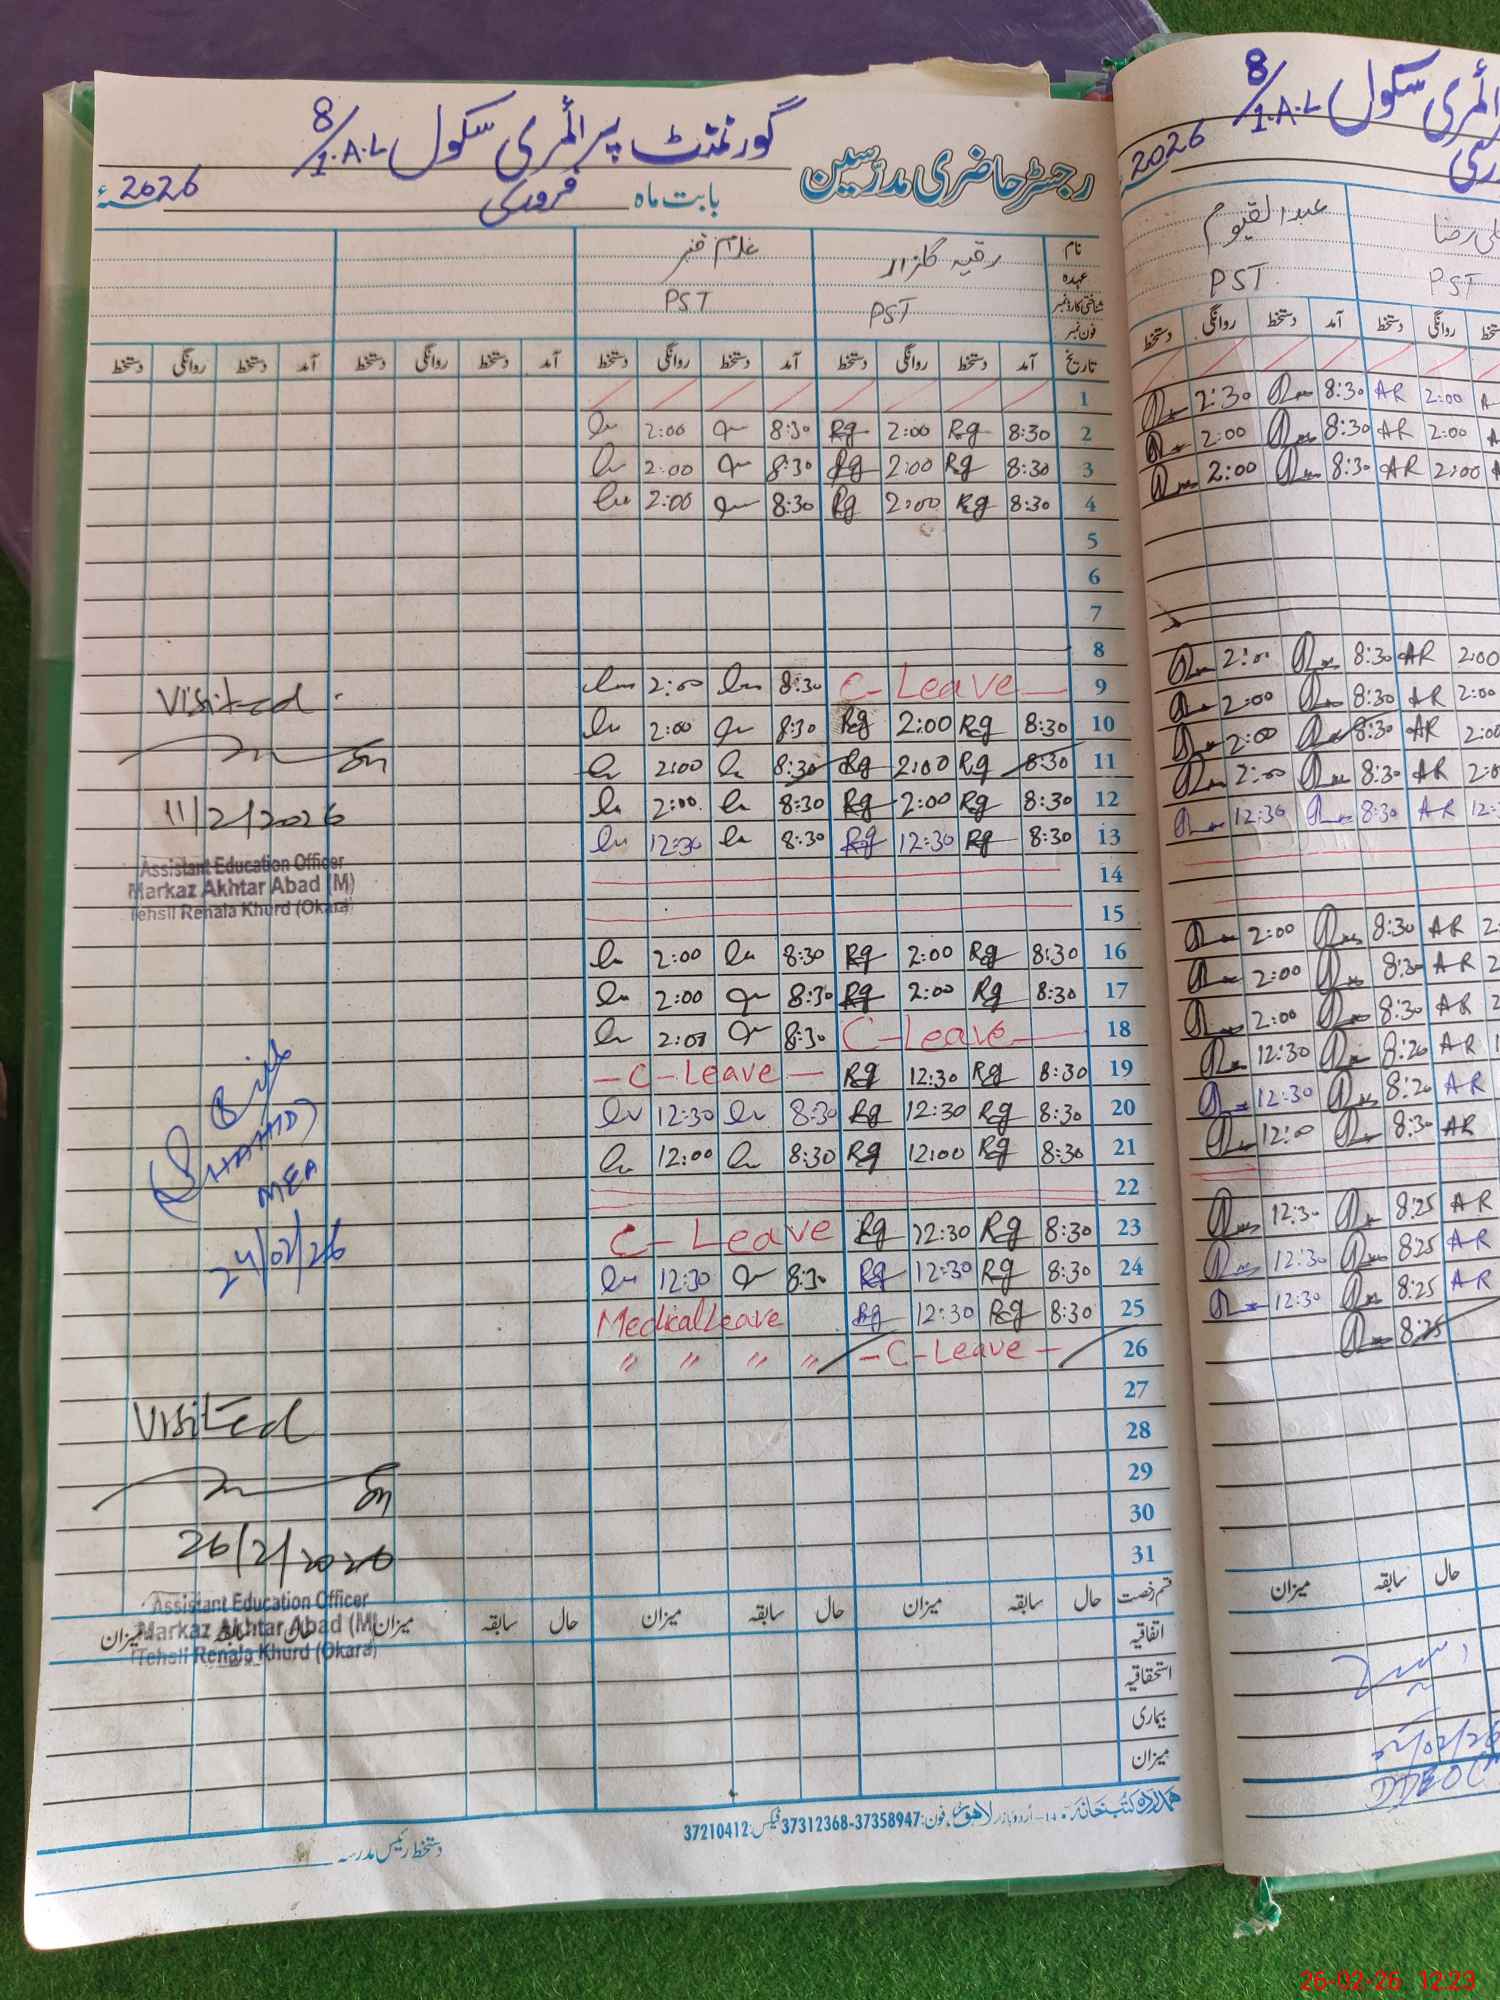 گورنمنٹ پرائمری سکول 8/1.A.L
رجسٹر حاضری مدرسین
بابت ماہ فروری 2026ء
نام رقیہ گلزار غلام قنبر
عہدہ
شناختی کارڈ نمبر PST PST
فون نمبر
تاریخ آمد دستخط روانگی دستخط آمد دستخط روانگی دستخط آمد دستخط روانگی دستخط آمد دستخط روانگی دستخط
1
2 8:30 Rg 2:00 Rg 8:30 2:00
3 8:30 Rg 2:00 Rg 8:30 2:00
4 8:30 Rg 2:00 Rg 8:30 2:00
5
6
7
8
9 C-Leave 8:30 2:00
10 8:30 Rg 2:00 Rg 8:30 2:00
11 8:30 Rg 2:00 Rg 8:30 2:00
12 8:30 Rg 2:00 Rg 8:30 2:00
13 8:30 Rg 12:30 Rg 8:30 12:30
14
15
16 8:30 Rg 2:00 Rg 8:30 2:00
17 8:30 Rg 2:00 Rg 8:30 2:00
18 C-Leave 8:30 2:00
19 8:30 Rg 12:30 Rg -C-Leave-
20 8:30 Rg 12:30 Rg 8:30 12:30
21 8:30 Rg 12:00 Rg 8:30 12:00
22
23 8:30 Rg 12:30 Rg C-Leave
24 8:30 Rg 12:30 Rg 8:30 12:30
25 8:30 Rg 12:30 Rg Medical Leave
26 -C-Leave- " " " "
27
28
29
30
31
قسم رخصت حال سابقہ میزان حال سابقہ میزان حال سابقہ میزان حال سابقہ میزان
اتفاقیہ
استحقاقیہ
بیماری
میزان
Visited
11/2/2026
Assistant Education Officer
Markaz Akhtar Abad (M)
Tehsil Renala Khurd (Okara)
MEA
24/02/26
Visited
26/2/2026
Assistant Education Officer
Markaz Akhtar Abad (M)
Tehsil Renala Khurd (Okara)
ہمدرد کتب خانہ 14-اردو بازار لاہور، فون: 37312368-37358947 فیکس: 37210412
دستخط رئیس مدرسہ
ائمری سکول 8/1.A.L
2026
عبدالقیوم
علی رضا
PST
PST
دستخط روانگی دستخط آمد دستخط روانگی
8:30 2:30 AR 2:00
8:30 2:00 AR 2:00
8:30 2:00 AR 2:00
8:30 2:00 AR 2:00
8:30 2:00 AR 2:00
8:30 2:00 AR 2:00
8:30 2:00 AR
8:30 12:30 AR
8:30 2:00 AR
8:30 2:00 AR
8:30 2:00 AR
8:20 12:30 AR
8:20 12:30 AR
8:30 12:00 AR
8:25 12:30 AR
8:25 12:30 AR
8:25 12:30 AR
8:25
میزان سابقہ حال
26-02-26 12:23